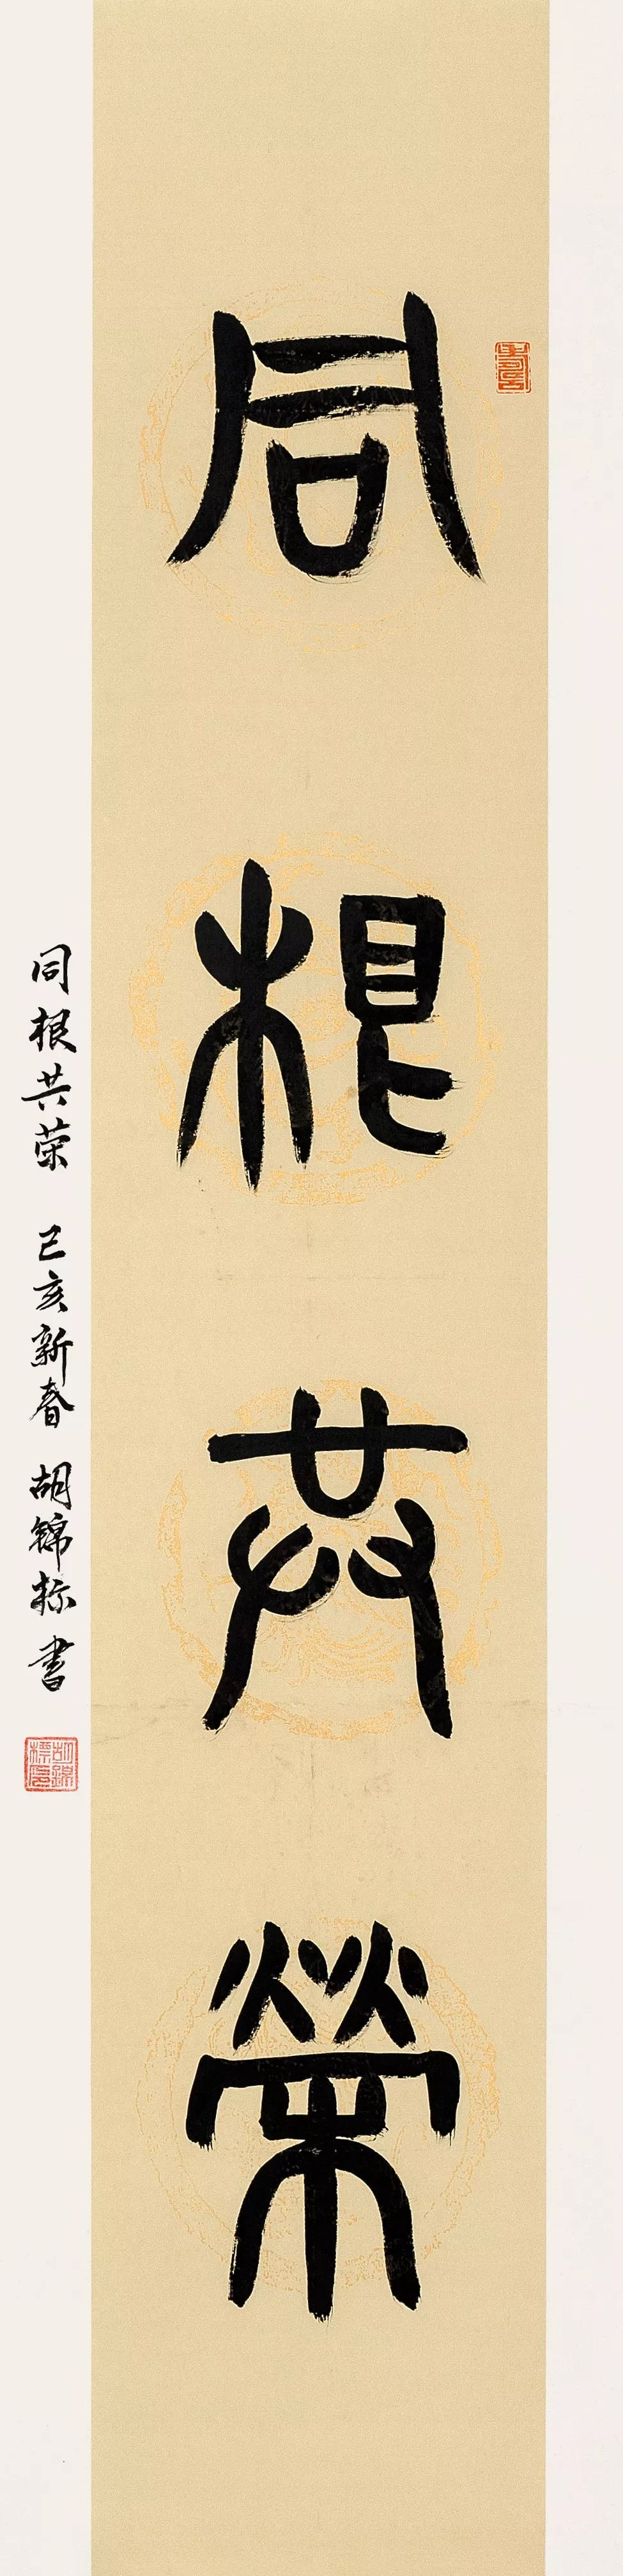 同根共荣
同根共荣 己亥新春 胡锦标书